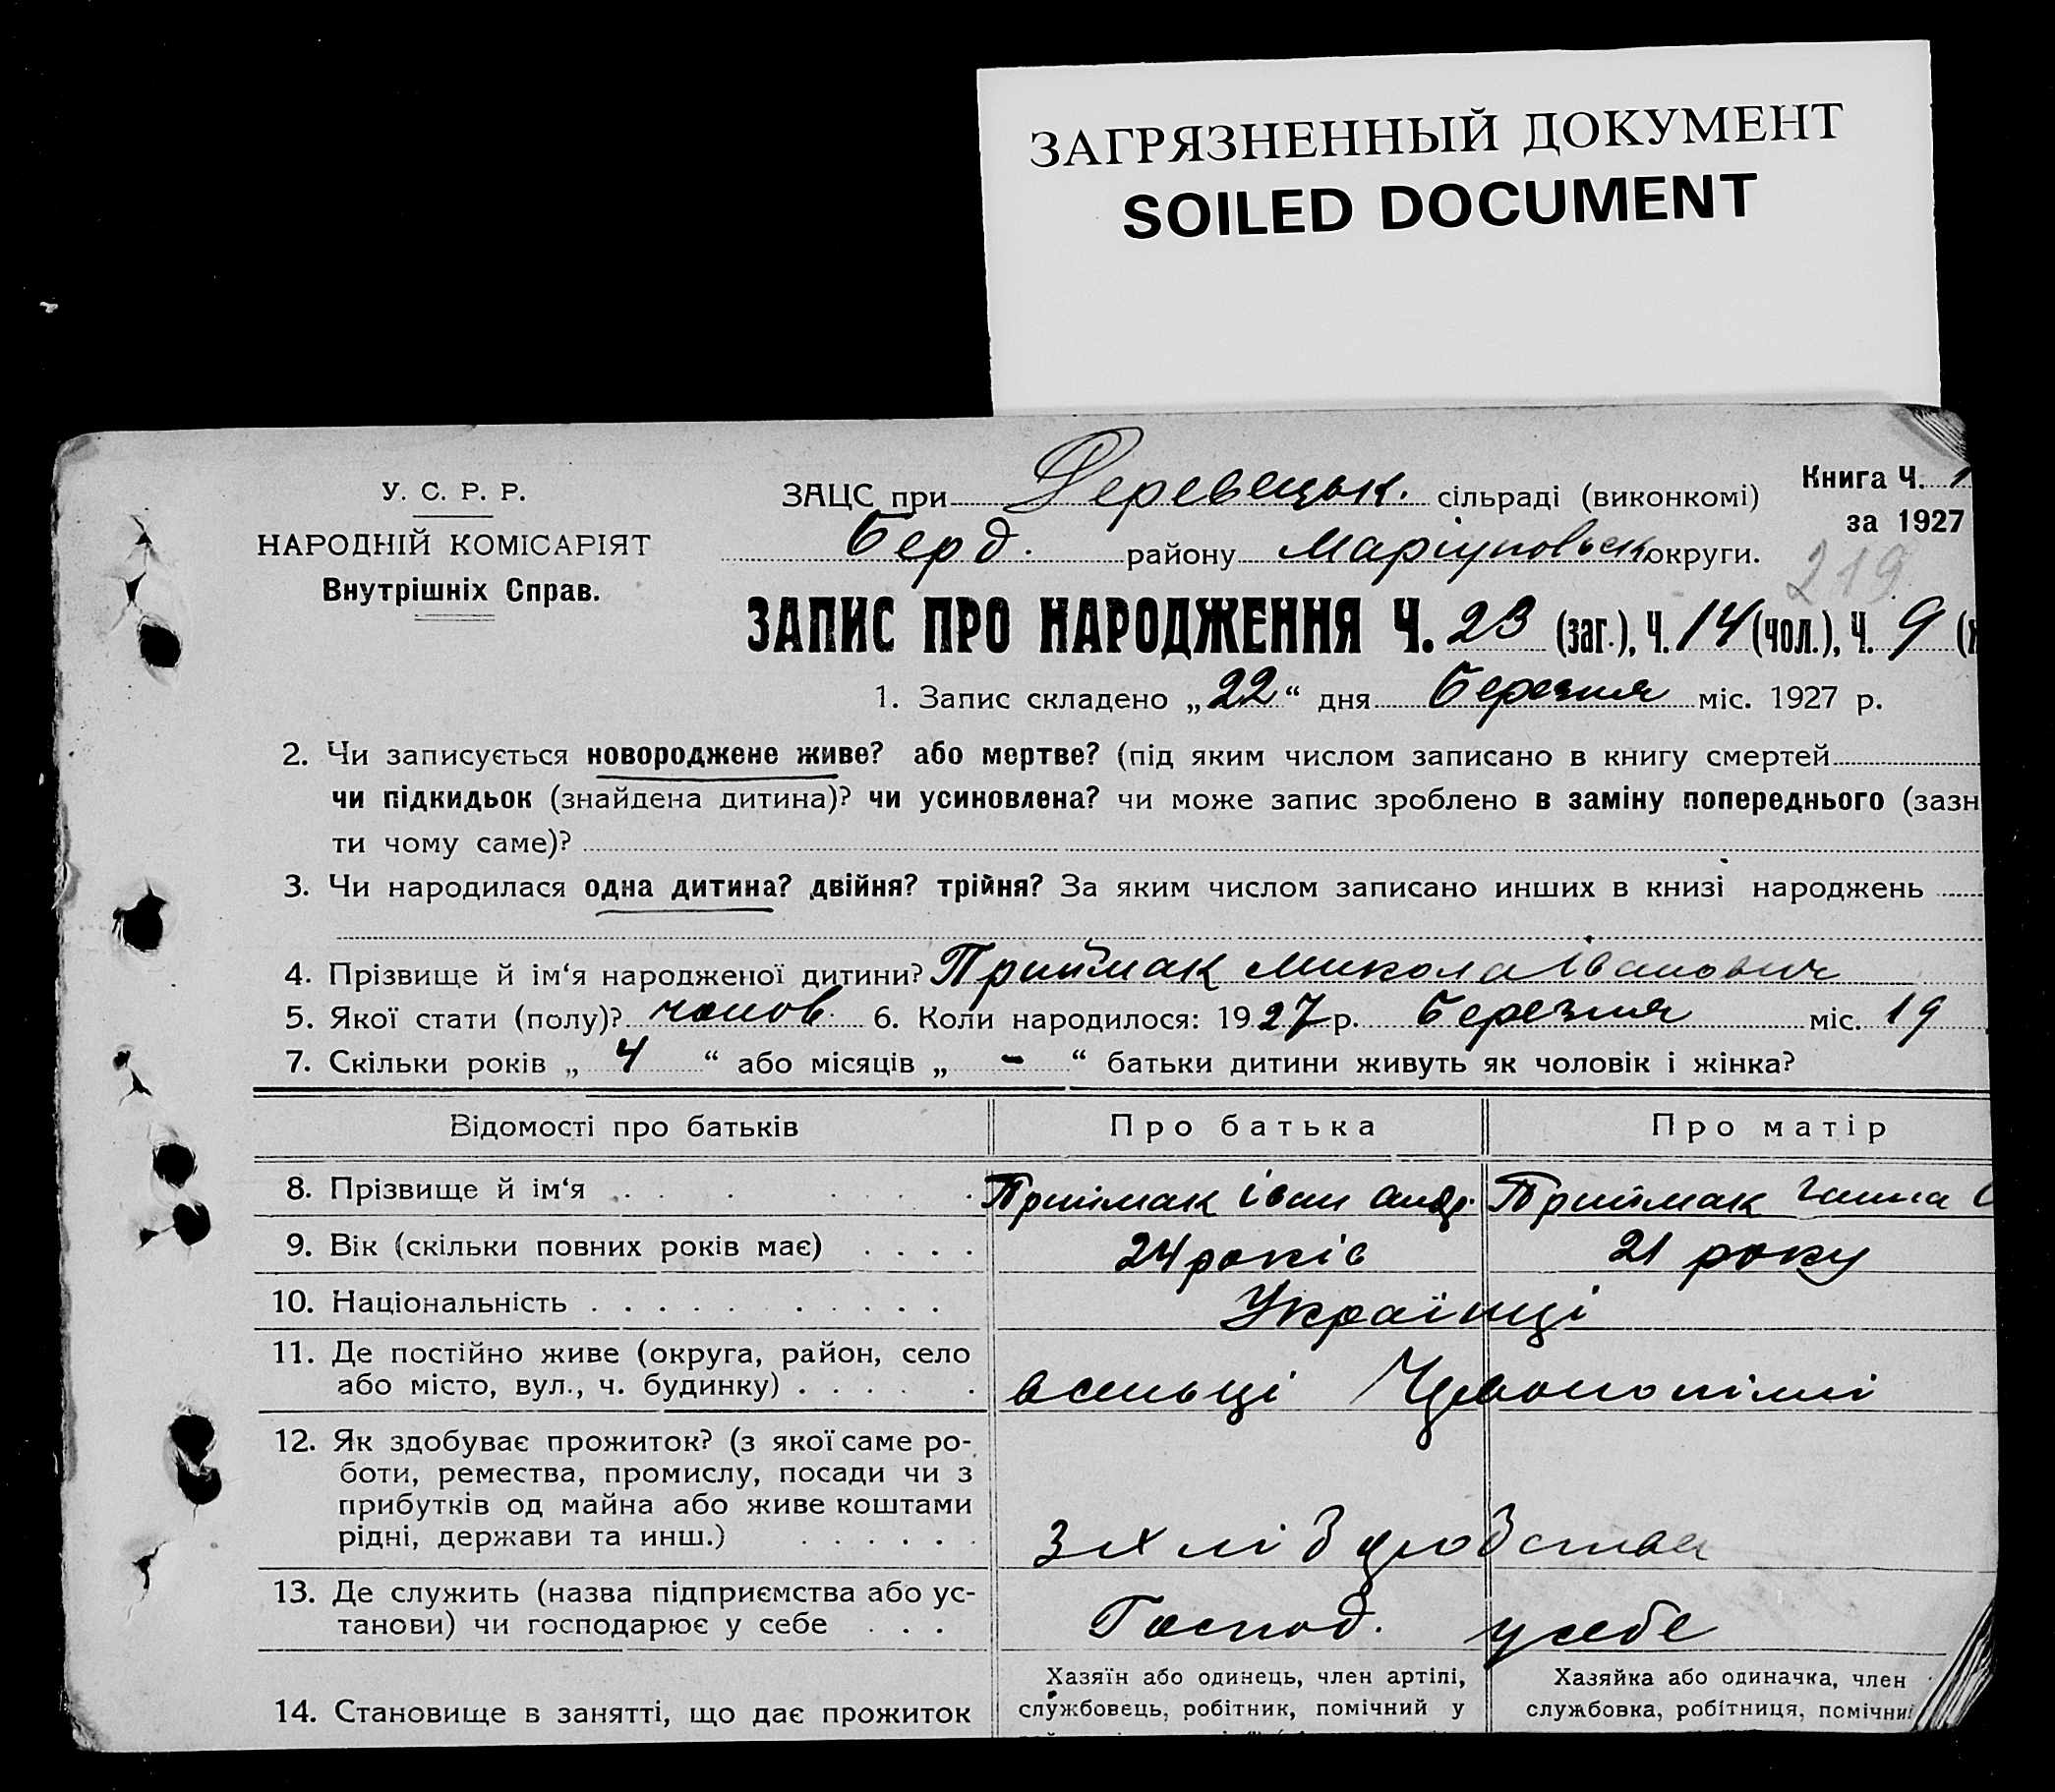 ЗАГРЯЗНЕННЫЙ ДОКУМЕНТ
SOILED DOCUMENT
У. С. Р. Р.
НАРОДНІЙ КОМІСАРІЯТ
Внутрішніх Справ.
Книга Ч. 1
за 1927
ЗАЦС при Деревецьк. сільраді (виконкомі)
Берд. району Маріупольськ округи.
219
ЗАПИС ПРО НАРОДЖЕННЯ Ч. 23 (заг.), Ч. 14 (чол.), Ч. 9 (ж
1. Запис складено „22“ дня Березня міс. 1927 р.
2. Чи записується новороджене живе? або мертве? (під яким числом записано в книгу смертей
чи підкидьок (знайдена дитина)? чи усиновлена? чи може запис зроблено в заміну попереднього (зазн
ти чому саме)?
3. Чи народилася одна дитина? двійня? трійня? За яким числом записано инших в книзі народжень
4. Прізвище й ім‘я народженої дитини? Приймак Микола Іванович
5. Якої стати (полу)? чолов. 6. Коли народилося: 1927 р. Березня міс. 19
7. Скільки років „ 4 “ або місяців „ - “ батьки дитини живуть як чоловік і жінка?
Відомості про батьків Про батька Про матір
8. Прізвище й ім‘я Приймак Іван Андр. Приймак Ганна
9. Вік (скільки повних років має) 24 років 21 року
10. Національність Українці
11. Де постійно живе (округа, район, село
або місто, вул., ч. будинку)
12. Як здобуває прожиток? (з якої саме ро-
боти, ремества, промислу, посади чи з
прибутків од майна або живе коштами
рідні, держави та инш.) З хліборобства
13. Де служить (назва підприємства або ус-
танови) чи господарює у себе Господ. у себе
14. Становище в занятті, що дає прожиток
Хазяїн або одинець, член артілі,
службовець, робітник, помічний у
Хазяйка або одиначка, член
службовка, робітниця, помічни